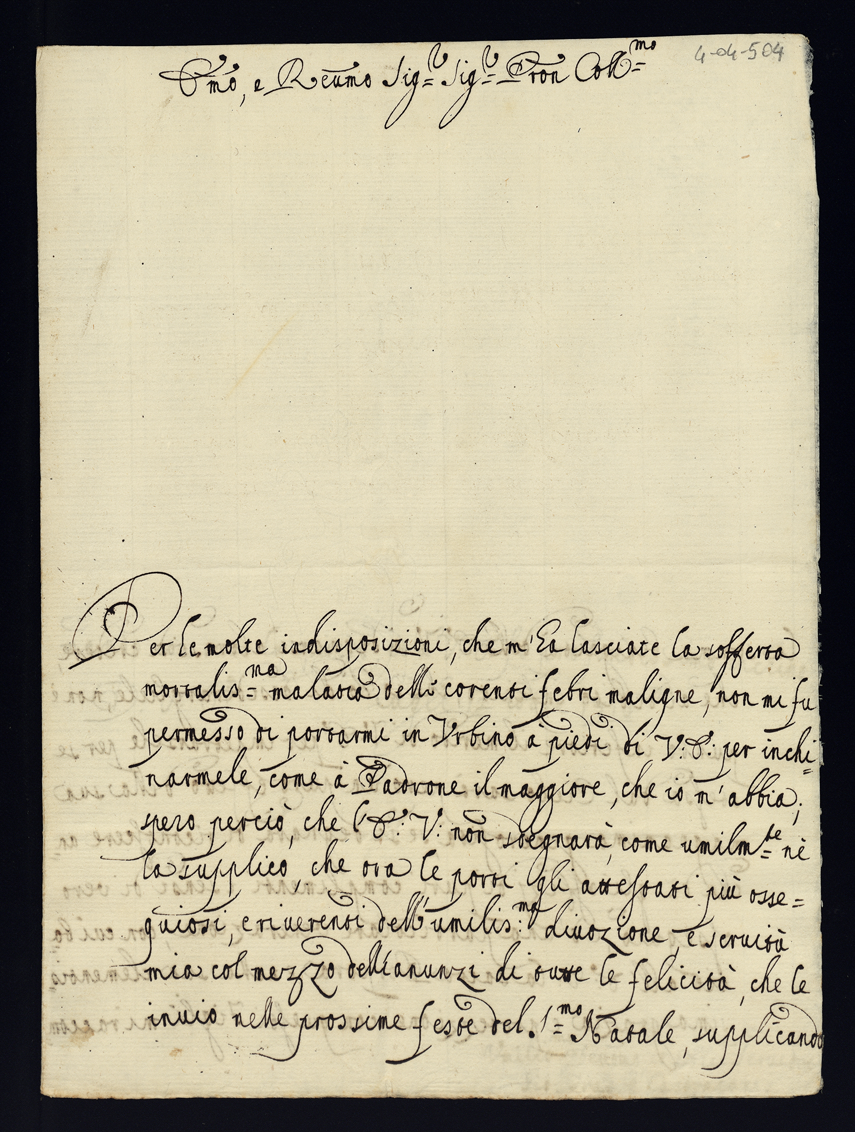 4-04-504
Emo, e Reumo Sig.r Sig.r Pron Coll.mo
Per le molte indisposizioni, che m'ha lasciate la sofferta
mortalis.ma malatia delli corenti febri maligne, non mi fu
permesso di portarmi in Urbino a piedi di V: E: per inchi=
narmele, come à Padrone il maggiore, che io m'abbia;
spero perciò, che l'E: V: non sdegnarà, come umilm.te nè
la supplico, che ora le porti gli attestati più osse=
quiosi, e riverenti dell'umilis.ma divozione, e servitù
mia col mezzo dell'anunzi di tutte le felicità, che le
invio nelle prossime feste del S.mo Natale, supplicando